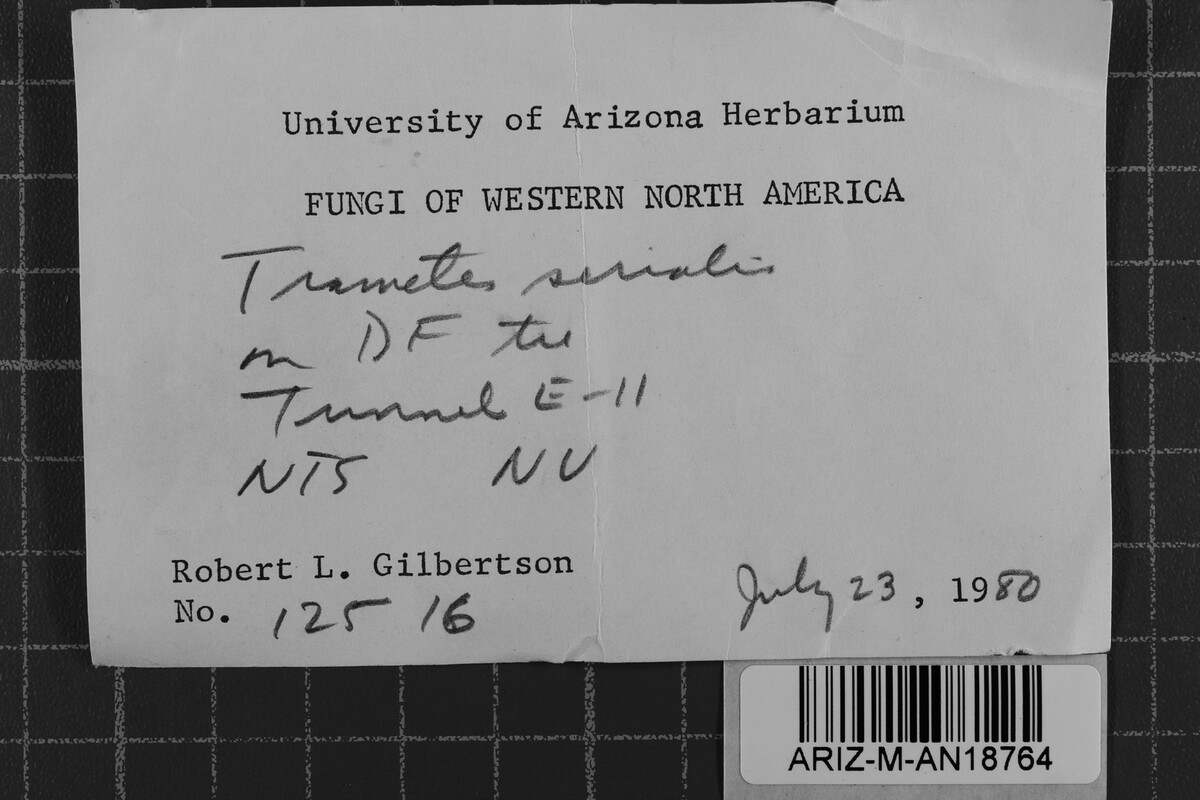 University of Arizona Herbarium
FUNGI OF WESTERN NORTH AMERICA
Trametes serialis
on DF tie
Tunnel E-11
NTS NV
Robert L. Gilbertson
No. 12516
July 23, 1980
ARIZ-M-AN18764